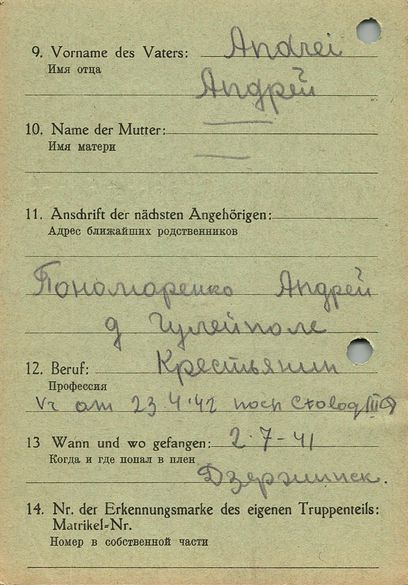 9. Vorname des Vaters: Andrei
Имя отца
Андрей
10. Name der Mutter: —
Имя матери —
11. Anschrift der nächsten Angehörigen:
Адрес ближайших родственников
Пономаренко Андрей
д Гулейполе
12. Beruf: Крестьянин
Профессия
Vr am 23.4.42 nach Stalag III
13 Wann und wo gefangen: 2-7-41
Когда и где попал в плен
Дзержинск.
14. Nr. der Erkennungsmarke des eigenen Truppenteils:
Matrikel-Nr.
Номер в собственной части